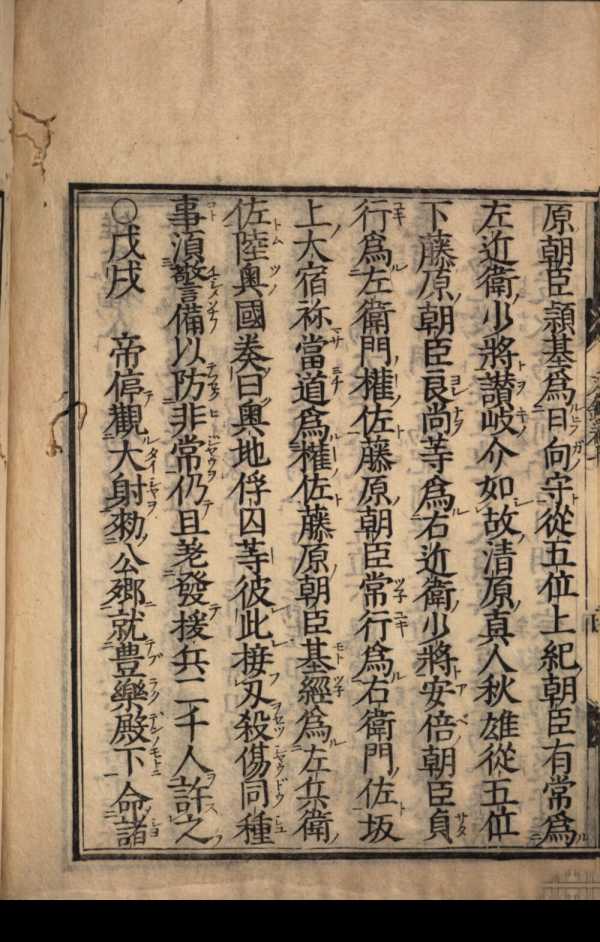 原朝臣頴基爲日向守從五位上紀朝臣有常爲
左近衛少將讃岐介如故清原真人秋雄從五位
下藤原朝臣良尚等爲右近衛少將安倍朝臣貞
行爲左衛門權佐藤原朝臣常行爲右衛門佐坂
上大宿祢當道爲權佐藤原朝臣基經爲左兵衛
佐陸奥國奏曰奥地俘囚等彼此接刄殺傷同種
事湏警備以防非常仍且差發援兵二千人許之
○戊戌 帝停觀大射勑公卿就豊樂殿下命諸